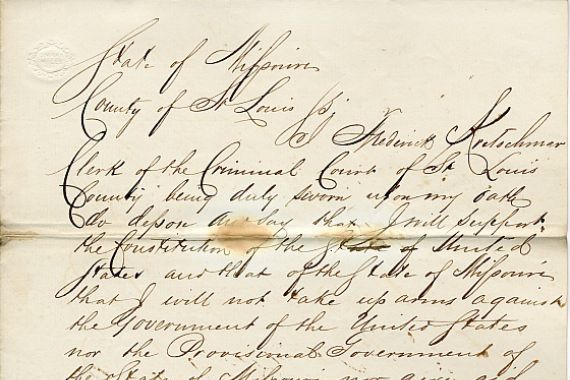 State of Missouri
County of St Louis ss
I Frederick Kretschmar
Clerk of the Criminal Court of St Louis
County being duly sworn upon my oath
do depose and say that I will support
the Constitution of the State of United
States and that of the State of Missouri
that I will not take up arms against
the Government of the United States
nor the Provisional Government of
the State of Missouri nor give aid